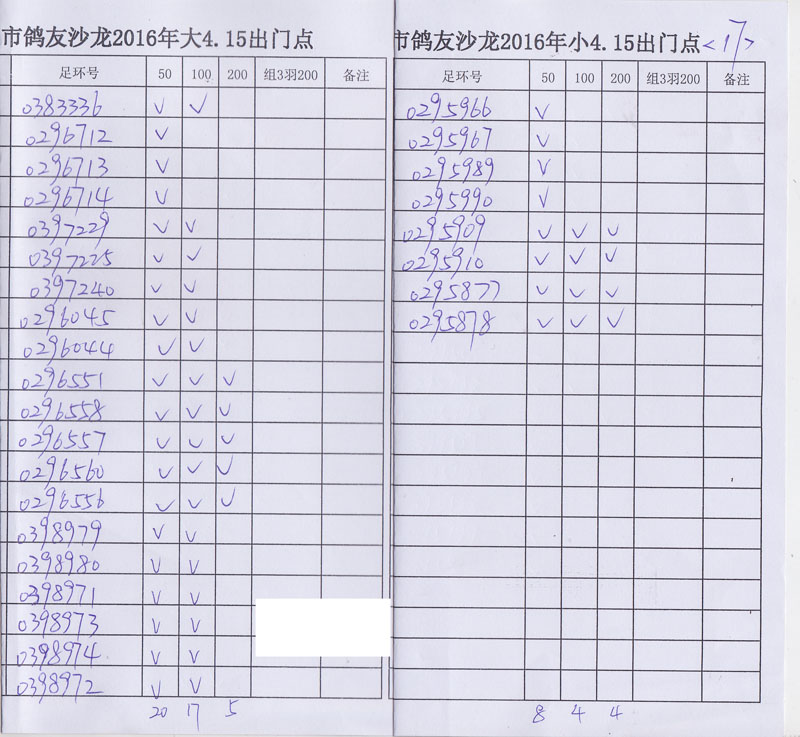 市鸽友沙龙2016年大4.15出门点
足环号 50 100 200 组3羽200 备注
0383336 √ √
0296712 √
0296713 √
0296714 √
0397229 √ √
0397225 √ √
0397240 √ √
0296045 √ √
0296044 √ √
0296551 √ √ √
0296558 √ √ √
0296557 √ √ √
0296560 √ √ √
0296556 √ √ √
0398979 √ √
0398980 √ √
0398971 √ √
0398973 √ √
0398974 √ √
0398972 √ √
20 17 5
市鸽友沙龙2016年小4.15出门点<17>
足环号 50 100 200 组3羽200 备注
0295966 √
0295967 √
0295989 √
0295990 √
0295909 √ √ √
0295910 √ √ √
0295877 √ √ √
0295878 √ √ √
8 4 4